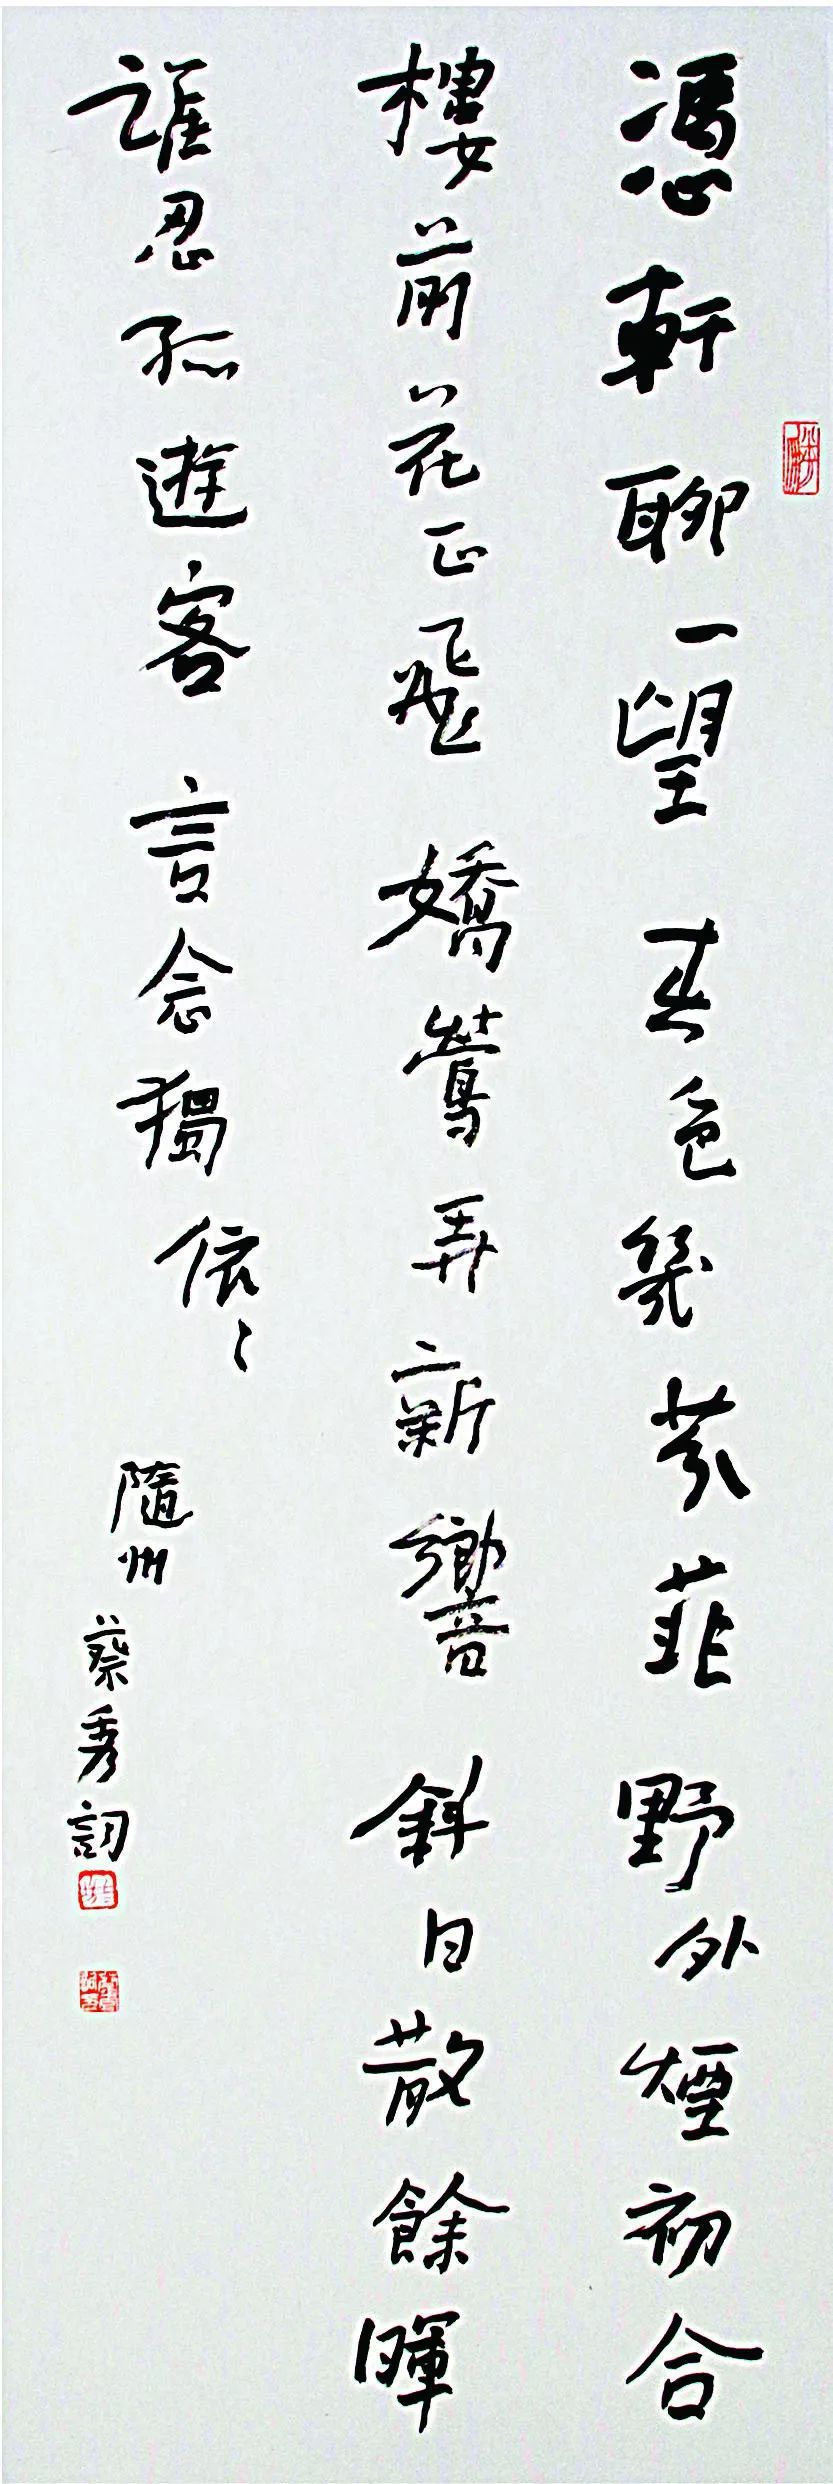 憑軒聊一望春色幾芬菲野外煙初合
樓前花正飛嬌鶯弄新響斜日散餘暉
誰忍孤遊客言念獨依〻
隨州蔡秀詞